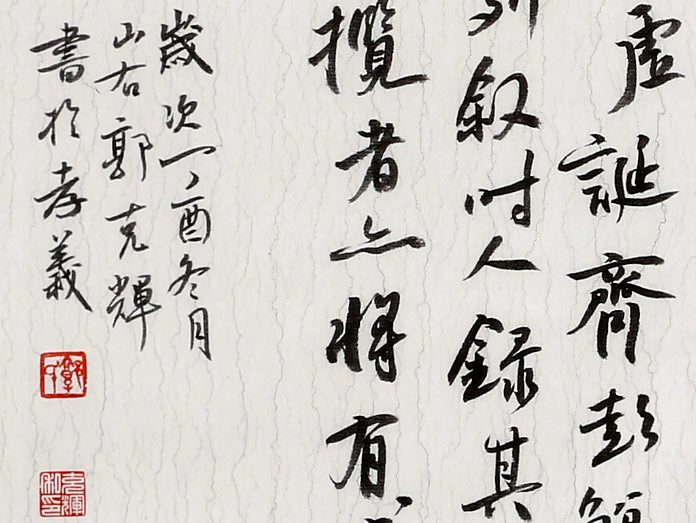 虚誕齊彭殤
列叙时人録其
攬者亦將有
歲次丁酉冬月
山右郭克輝
書於孝義